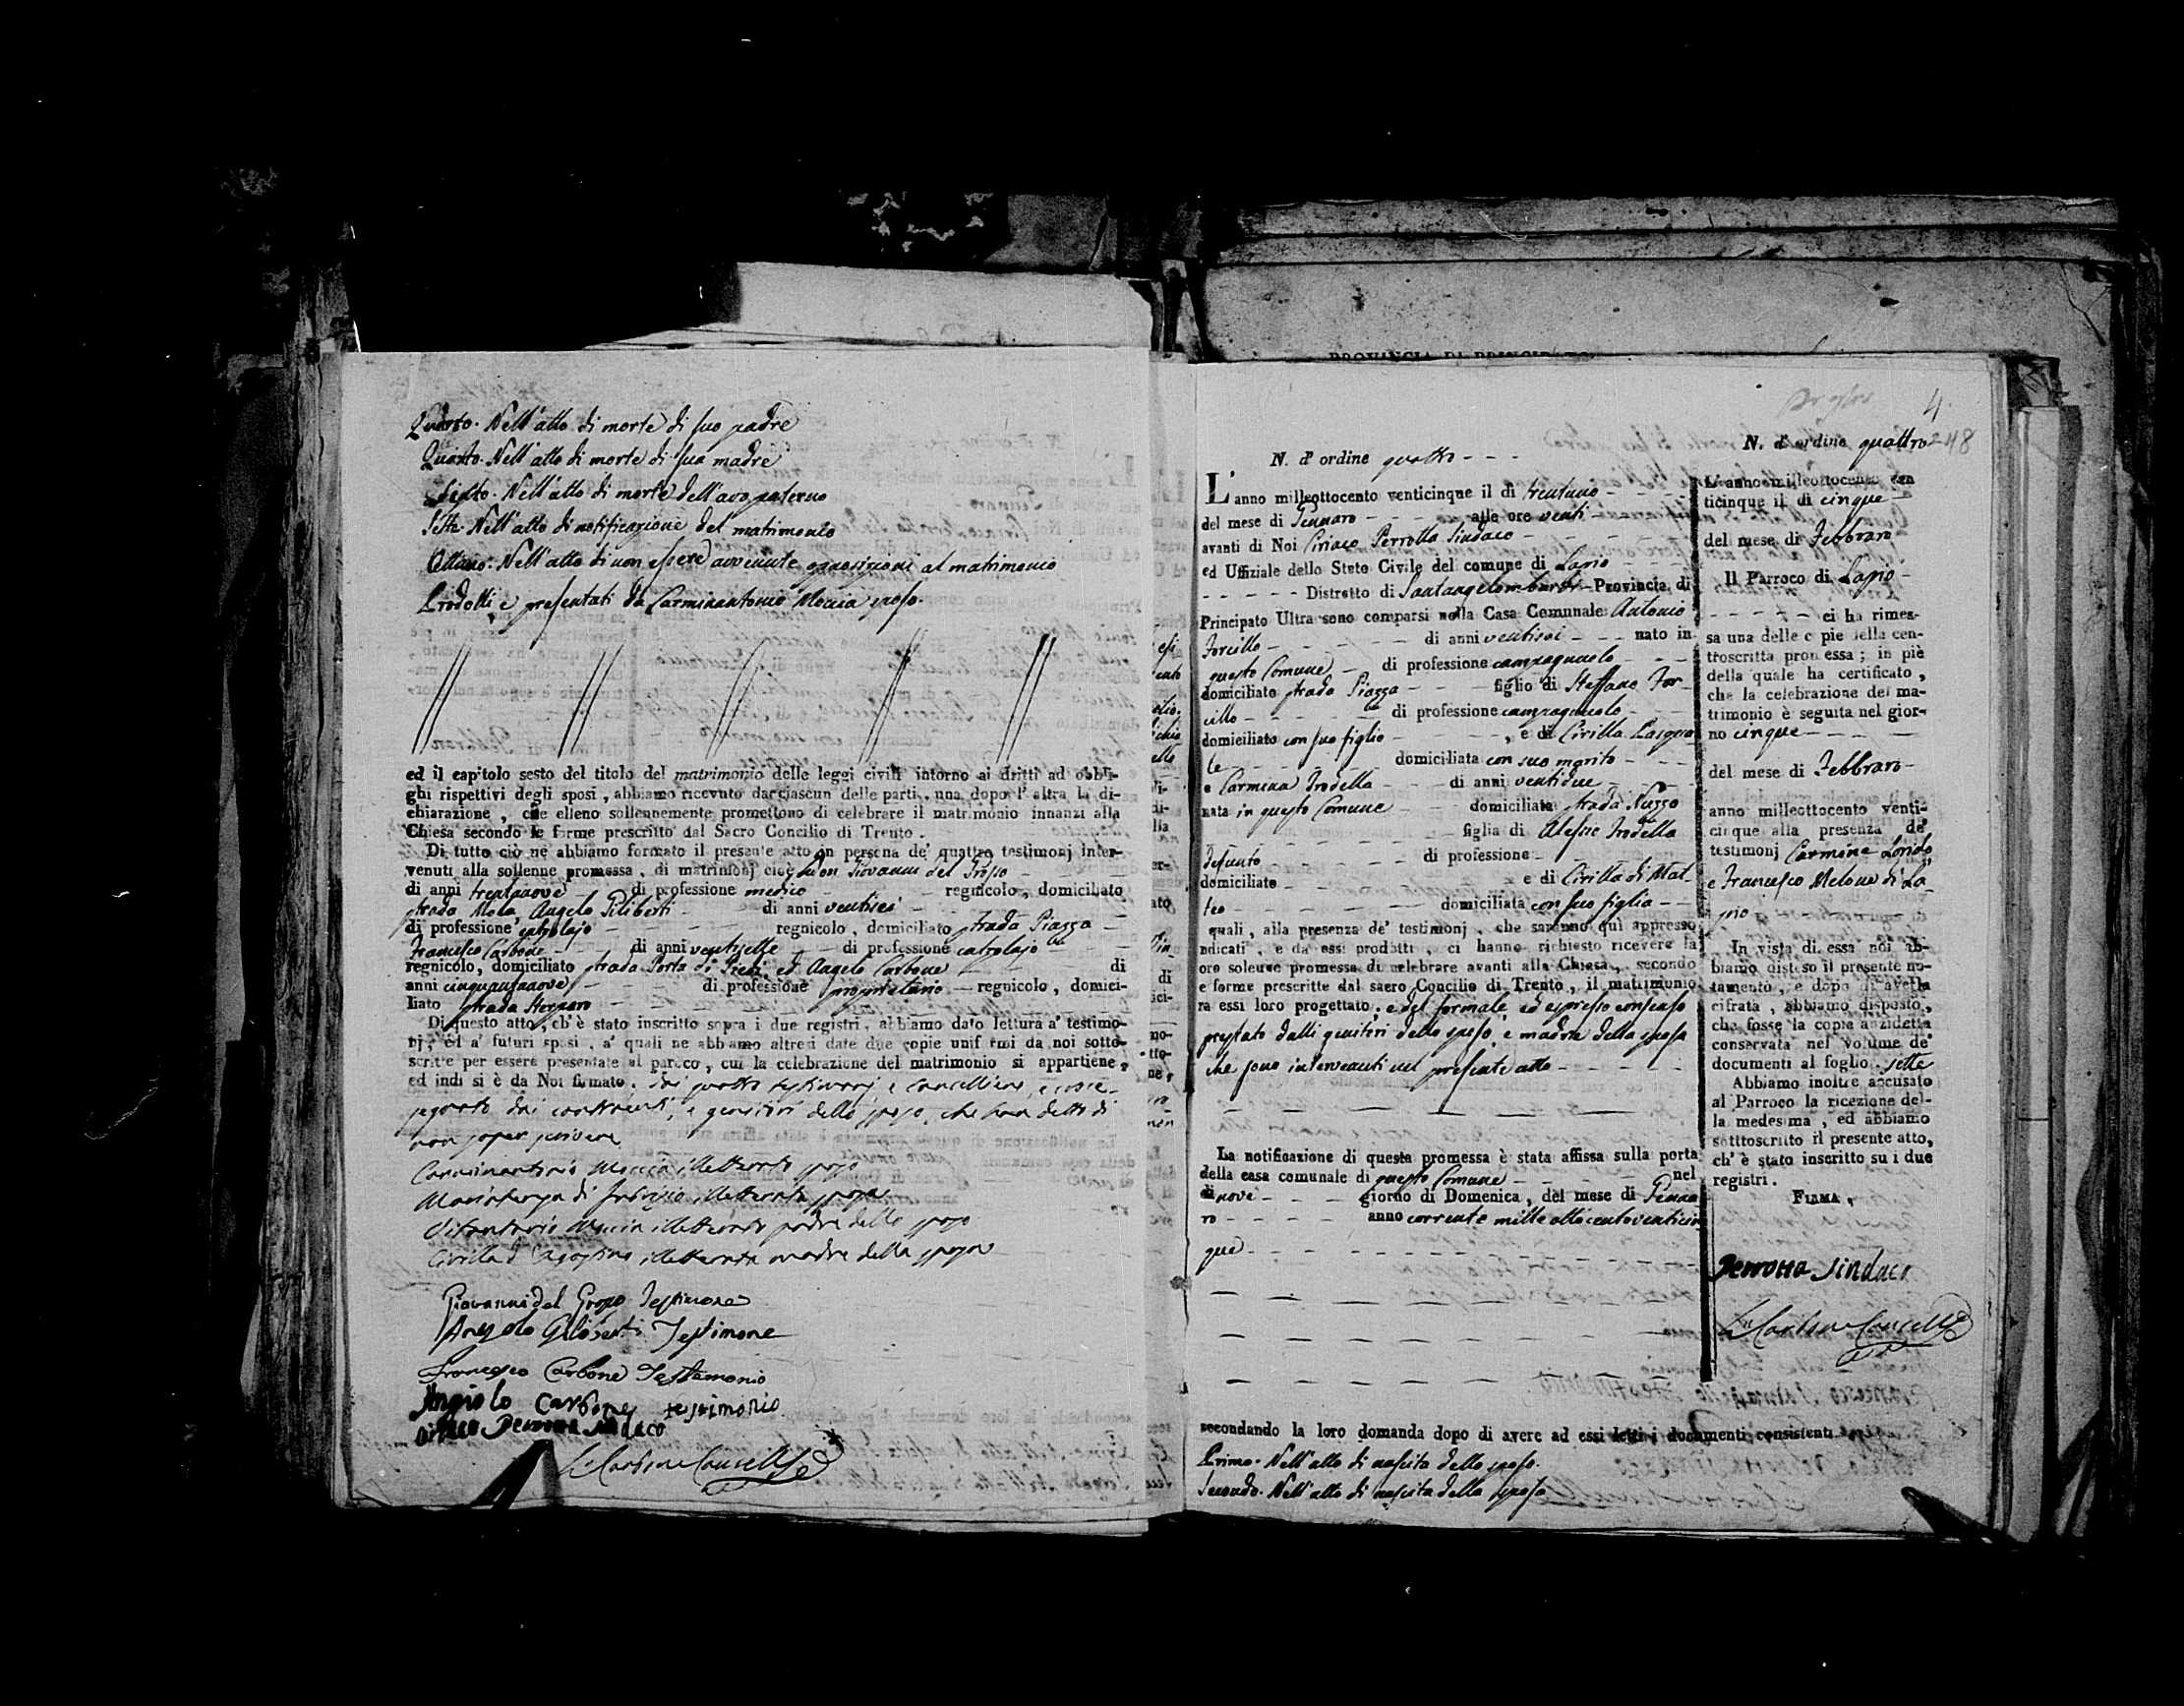 Quarto. Nell'atto di morte di suo padre
Quinto. Nell'atto di morte di sua madre
Sesto. Nell'atto di morte dell'avo paterno
Sette. Nell'atto di notificazione del matrimonio
Ottavo. Nell'atto di non essere avvenute opposizioni al matrimonio
Prodotti e presentati da Carminantonio Moccia sposo.
ed il capitolo sesto del titolo del matrimonio delle leggi civili intorno ai dritti ad obbli-
ghi rispettivi degli sposi, abbiamo ricevuto da ciascun delle parti, una dopo l'altra la di-
chiarazione, che elleno sollennemente promettono di celebrare il matrimonio innanzi alla
Chiesa secondo le forme prescritto dal Sacro Concilio di Trento.
Di tutto ciò ne abbiamo formato il presente atto in persona de' quattro testimonj inter-
venuti alla sollenne promessa, di matrimonj cioè Don Giovanni del Grosso
di anni trentanove di professione medico regnicolo, domiciliato
strada Mela, Angelo Giliberti di anni ventisei
di professione catrolajo regnicolo, domiciliato strada Piazza
Francesco Carbone di anni ventisette di professione catrolajo
regnicolo, domiciliato strada Porta di ed Angelo Carbone di
anni cinquantanove di professione proprietario regnicolo, domici-
liato strada
Di questo atto, ch'è stato inscritto sopra i due registri, abbiamo dato lettura a' testimo-
nj, ed a' futuri sposi, a' quali ne abbiamo altresì date due copie uniformi da noi sotto-
scritte per essere presentate al paroco, cui la celebrazione del matrimonio si appartiene,
ed indi si è da Noi firmato, dai quattro testimonj e Cancelliere, e
segnato dai contraenti, e genitori dello sposo, che han detto di
non saper scrivere
Carminantonio Moccia illetterato sposo
Mariateresa di Fabrizio illetterata sposa
Vitantonio Moccia illetterato padre dello sposo
Civilla d'Agostino illetterata madre della sposa
Giovanni del Grosso Testimone
Angelo Giliberti Testimone
Francesco Carbone Testimonio
Angiolo Carbone testimonio
Ciriaco Perrotta Sindaco
4
248
N. d'ordine quattro
L'anno milleottocento venticinque il di trentuno
del mese di Gennaro alle ore venti
avanti di Noi Ciriaco Perrotta Sindaco
ed Uffiziale dello Stato Civile del comune di Lapio
Distretto di Santangelombardi Provincia di
Principato Ultra sono comparsi nella Casa Comunale Antonio
Forcillo di anni ventisei nato in
questo Comune di professione campagnuolo
domiciliato strada Piazza figlio di Steffano For-
cillo di professione campagnuolo
domiciliato con suo figlio, e di Civilla Pasqua-
le domiciliata con suo marito
e Carmina Trodella di anni ventidue
nata in questo Comune domiciliata strada Nuzzo
figlia di Alesio Trodella
defunto di professione
domiciliato e di Civilla di Mat-
teo domiciliata con sua figlia
quali, alla presenza de' testimonj, che saranno qui appresso
ndicati, e da essi prodotti, ci hanno richiesto ricevere la
oro solenne promessa di celebrare avanti alla Chiesa, secondo
e forme prescritte dal sacro Concilio di Trento, il matrimonio
ra essi loro progettato, e del formale, ed espresso consenso
prestato dalli genitori dello sposo, e madre della sposa
che sono intervenuti nel presente atto
La notificazione di questa promessa è stata affissa sulla porta
della casa comunale di questo Comune nel
di nove giorno di Domenica, del mese di Genna-
ro anno corrente mille ottocentoventicin
que
secondando la loro domanda dopo di avere ad essi letti i documenti consistenti
Primo. Nell'atto di nascita dello sposo.
Secondo. Nell'atto di nascita della sposa
N. d'ordine quattro
L'anno milleottocento ven
ticinque il di cinque
del mese di Febbraro
Il Parroco di Lapio
ci ha rimes-
sa una delle copie della con-
troscritta promessa; in piè
della quale ha certificato,
che la celebrazione del ma-
trimonio è seguita nel gior-
no cinque
del mese di Febbraro
anno milleottocento venti-
cinque alla presenza de'
testimonj Carmine
e Francesco Melone di La-
pio
In vista di essa noi ab-
biamo disteso il presente no-
tamento, e dopo di averla
cifrata, abbiamo disposto,
che fosse la copia anzidetta
conservata nel volume de'
documenti al foglio sette
Abbiamo inoltre accusato
al Parroco la ricezione del-
la medesima, ed abbiamo
sotttoscritto il presente atto,
ch'è stato inscritto su i due
registri.
FIRMA,
Perrotta Sindaco